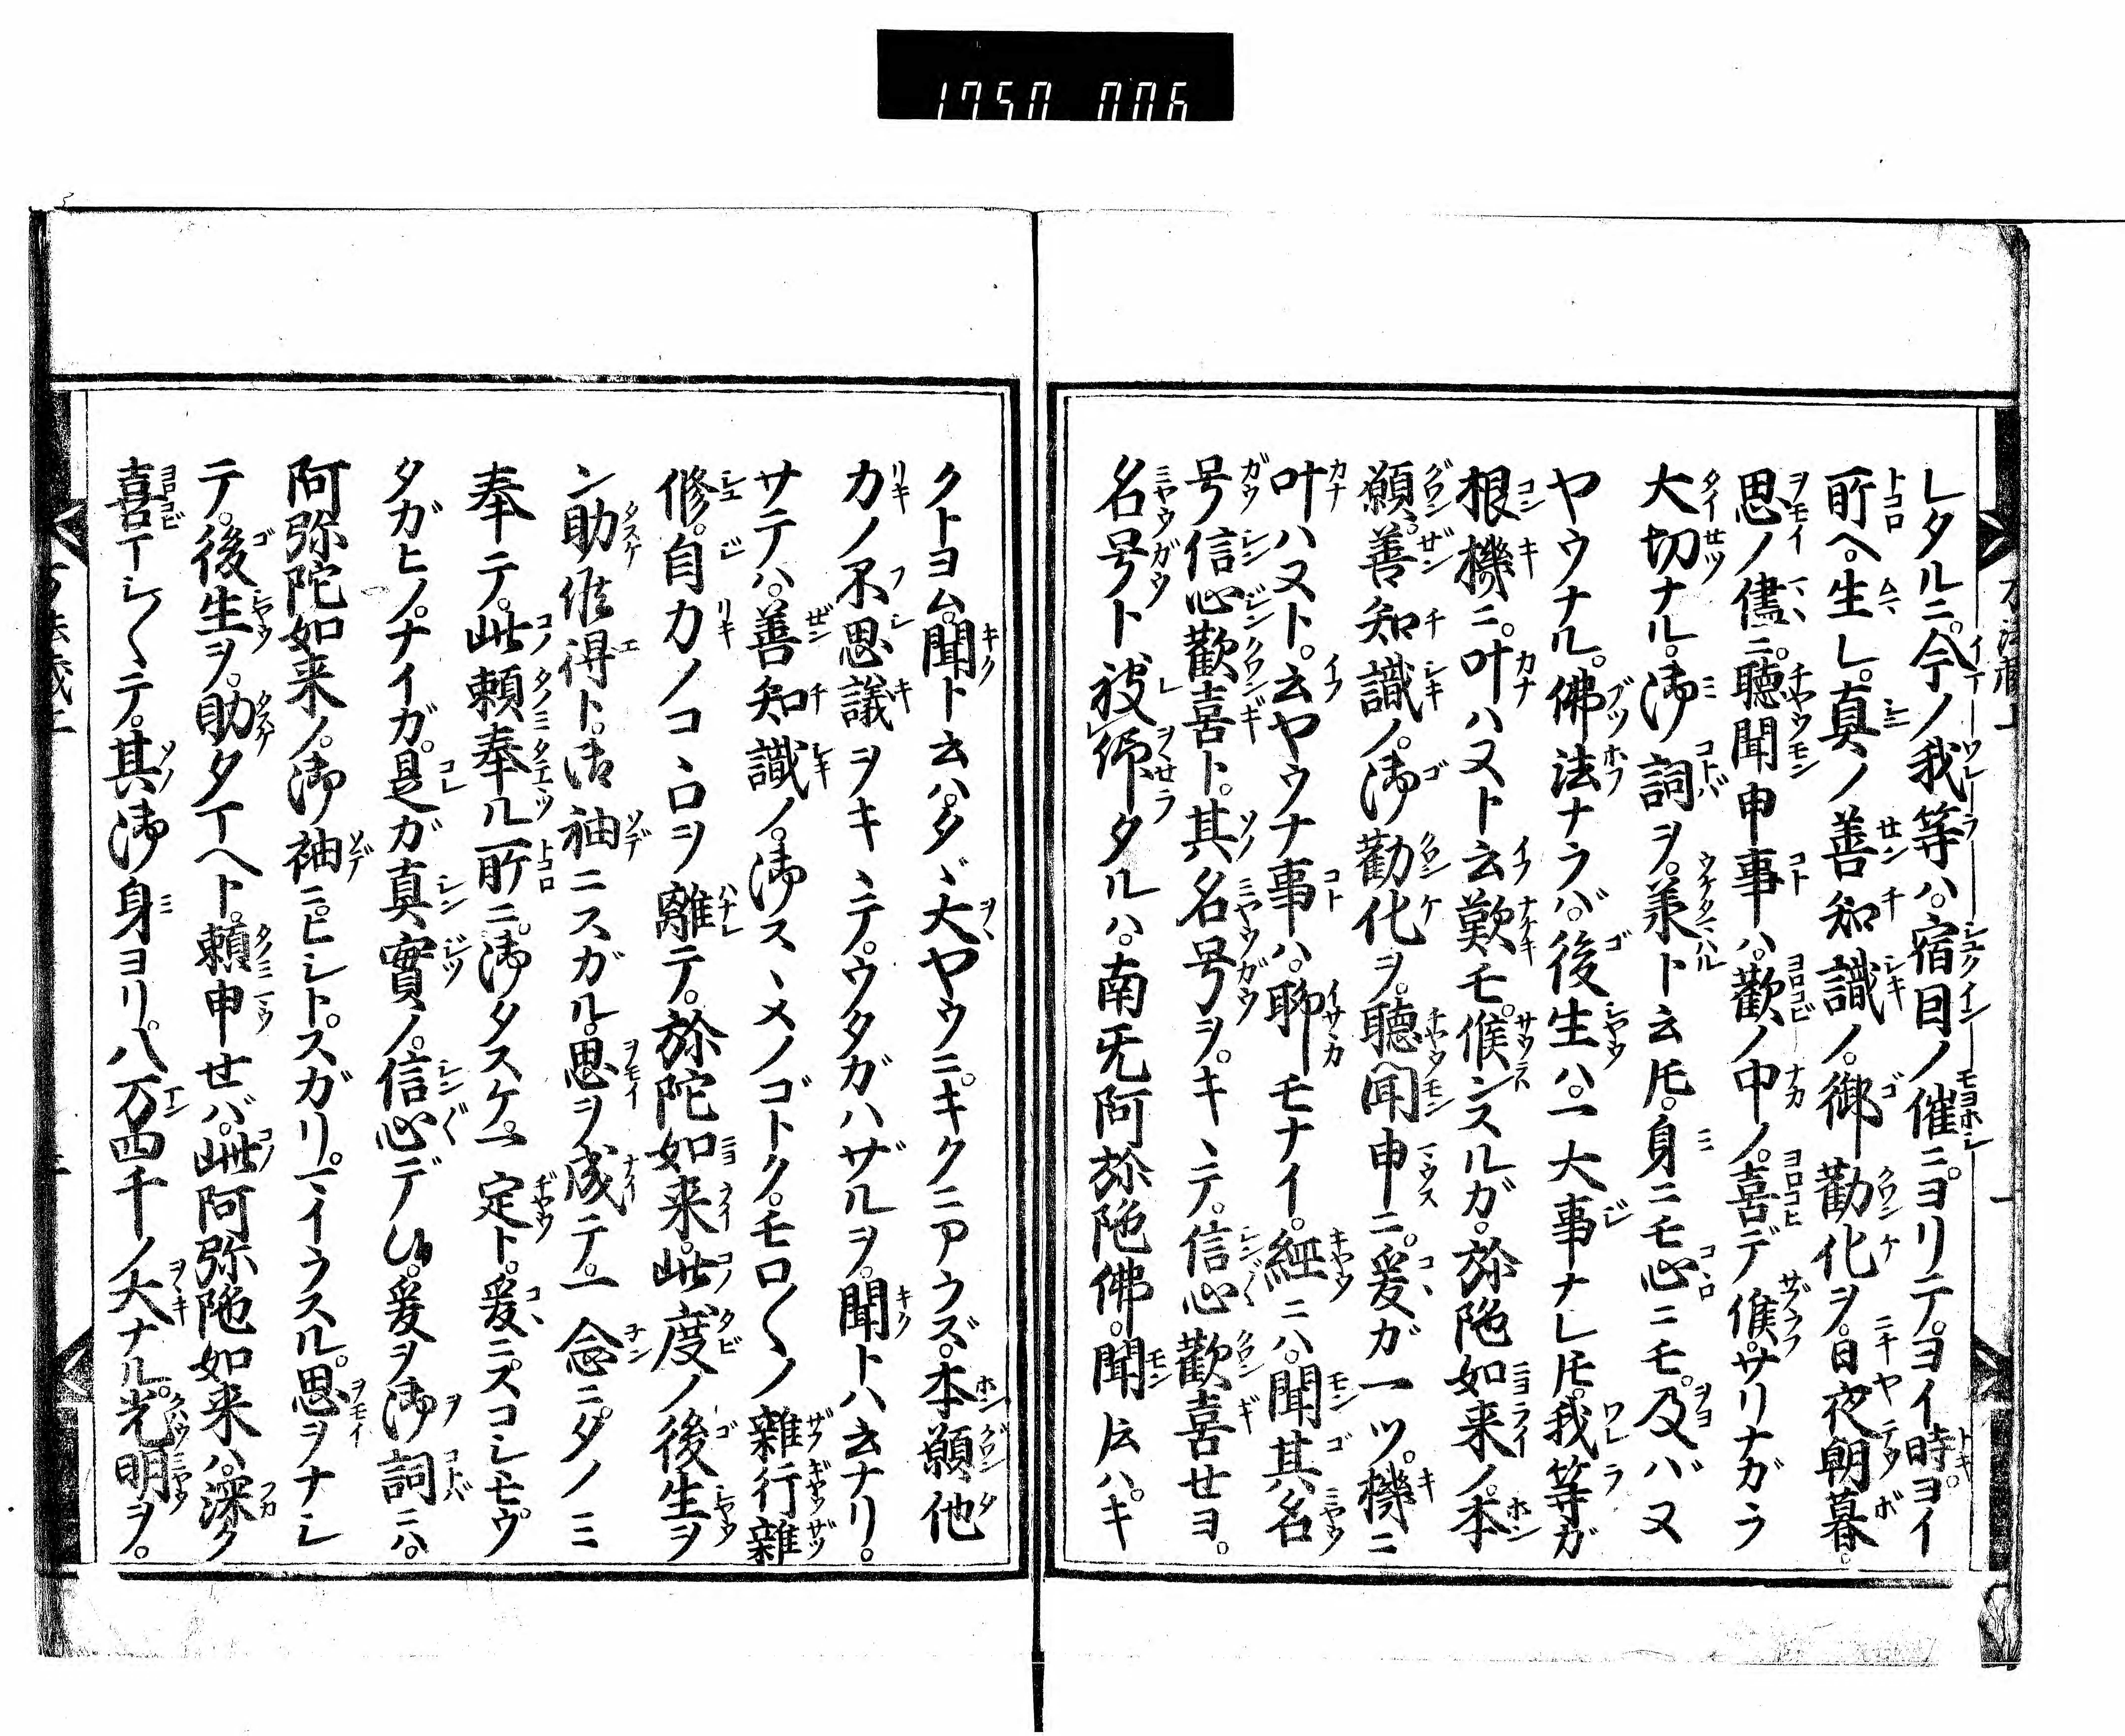 1750 006
レタルニ。今ノ我等ハ。宿因ノ催ニ。ヨリテ。ヨイ時。ヨイ
所ヘ。生レ。真ノ善知識ノ。御勧化ヲ。日夜朝暮。
思ノ儘ニ。聴聞申事ハ。歡ノ中ノ。喜デ候。サリナガラ
大切ナル。御詞ヲ。羕ト云𪜈。身ニモ心ニモ。及バヌ
ヤウナル。佛法ナラバ。後生ハ。一大事ナレ𪜈。我等ガ
根機ニ。叶ハヌト云歎モ。候ンスルガ。弥陁如来ノ。本
願。善知識ノ。御勸化ヲ。聴聞申ニ。爰ガ一ツ。機ニ
叶ハヌト。云ヤウナ事ハ。聊モナイ。經ニハ。聞其名
号信心歡喜ト。其名号ヲ。キヽテ。信心歡喜セヨ。
名号ト被師タルハ。南旡阿弥陁佛。聞𫝆ハ。キ
クトヨム。聞ト云ハ。タヾ大ヤウニ。キクニアウズ。本願他
力ノ不思議ヲキヽテ。ウタガハザルヲ。聞トハ云ナリ。
サテハ。善知識ノ。御スヽメノゴトク。モロ〱ノ雜行雜
修。自力ノコヽロヲ離テ。弥陀如来。此度ノ後生ヲ
ン助候得ト。御袖ニスガル。思ヲ成テ。一念ニ。タノミ
奉テ。此頼奉ル所ニ。御タスケ。一定ト。爰ニ。スコシモ。ウ
タガヒノ。ナイガ。是ガ真實ノ。信心デ。爰ヲ御詞ニハ。
阿弥陀如来ノ。御袖ニ。ヒシト。スガリ。マイラスル。思ヲナシ
テ。後生ヲ。助タマヘト。頼申セバ。此阿弥陁如来ハ。深ク
喜マシ〱テ。其御身ヨリ。八万四千ノ大ナル。光明ヲ。